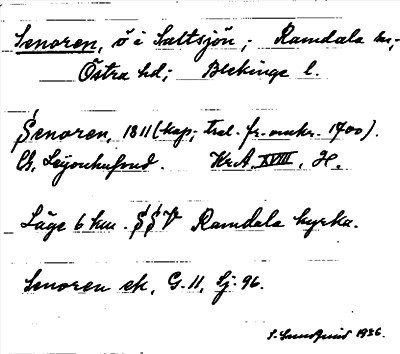 Senoren, ö i Saltsjön; Ramdala sn;
Östra hd; Blekinge l.
Senoren, 1811 (kop; trol. fr. omkr. 1700).
G. Leijonhufvud. KrA XVIII, H.
Läge 6 km. SSV Ramdala kyrka.
Senoren ek, G. 11, Sj. 96.
S. Sundquist 1936.